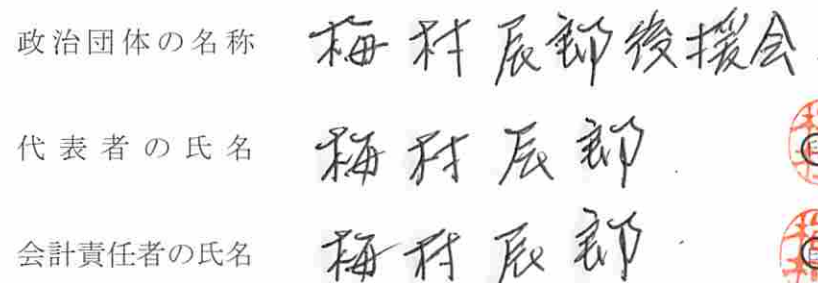 政治団体の名称 梅村辰郎後援会
代表者の氏名 梅村辰郎
会計責任者の氏名 梅村辰郎